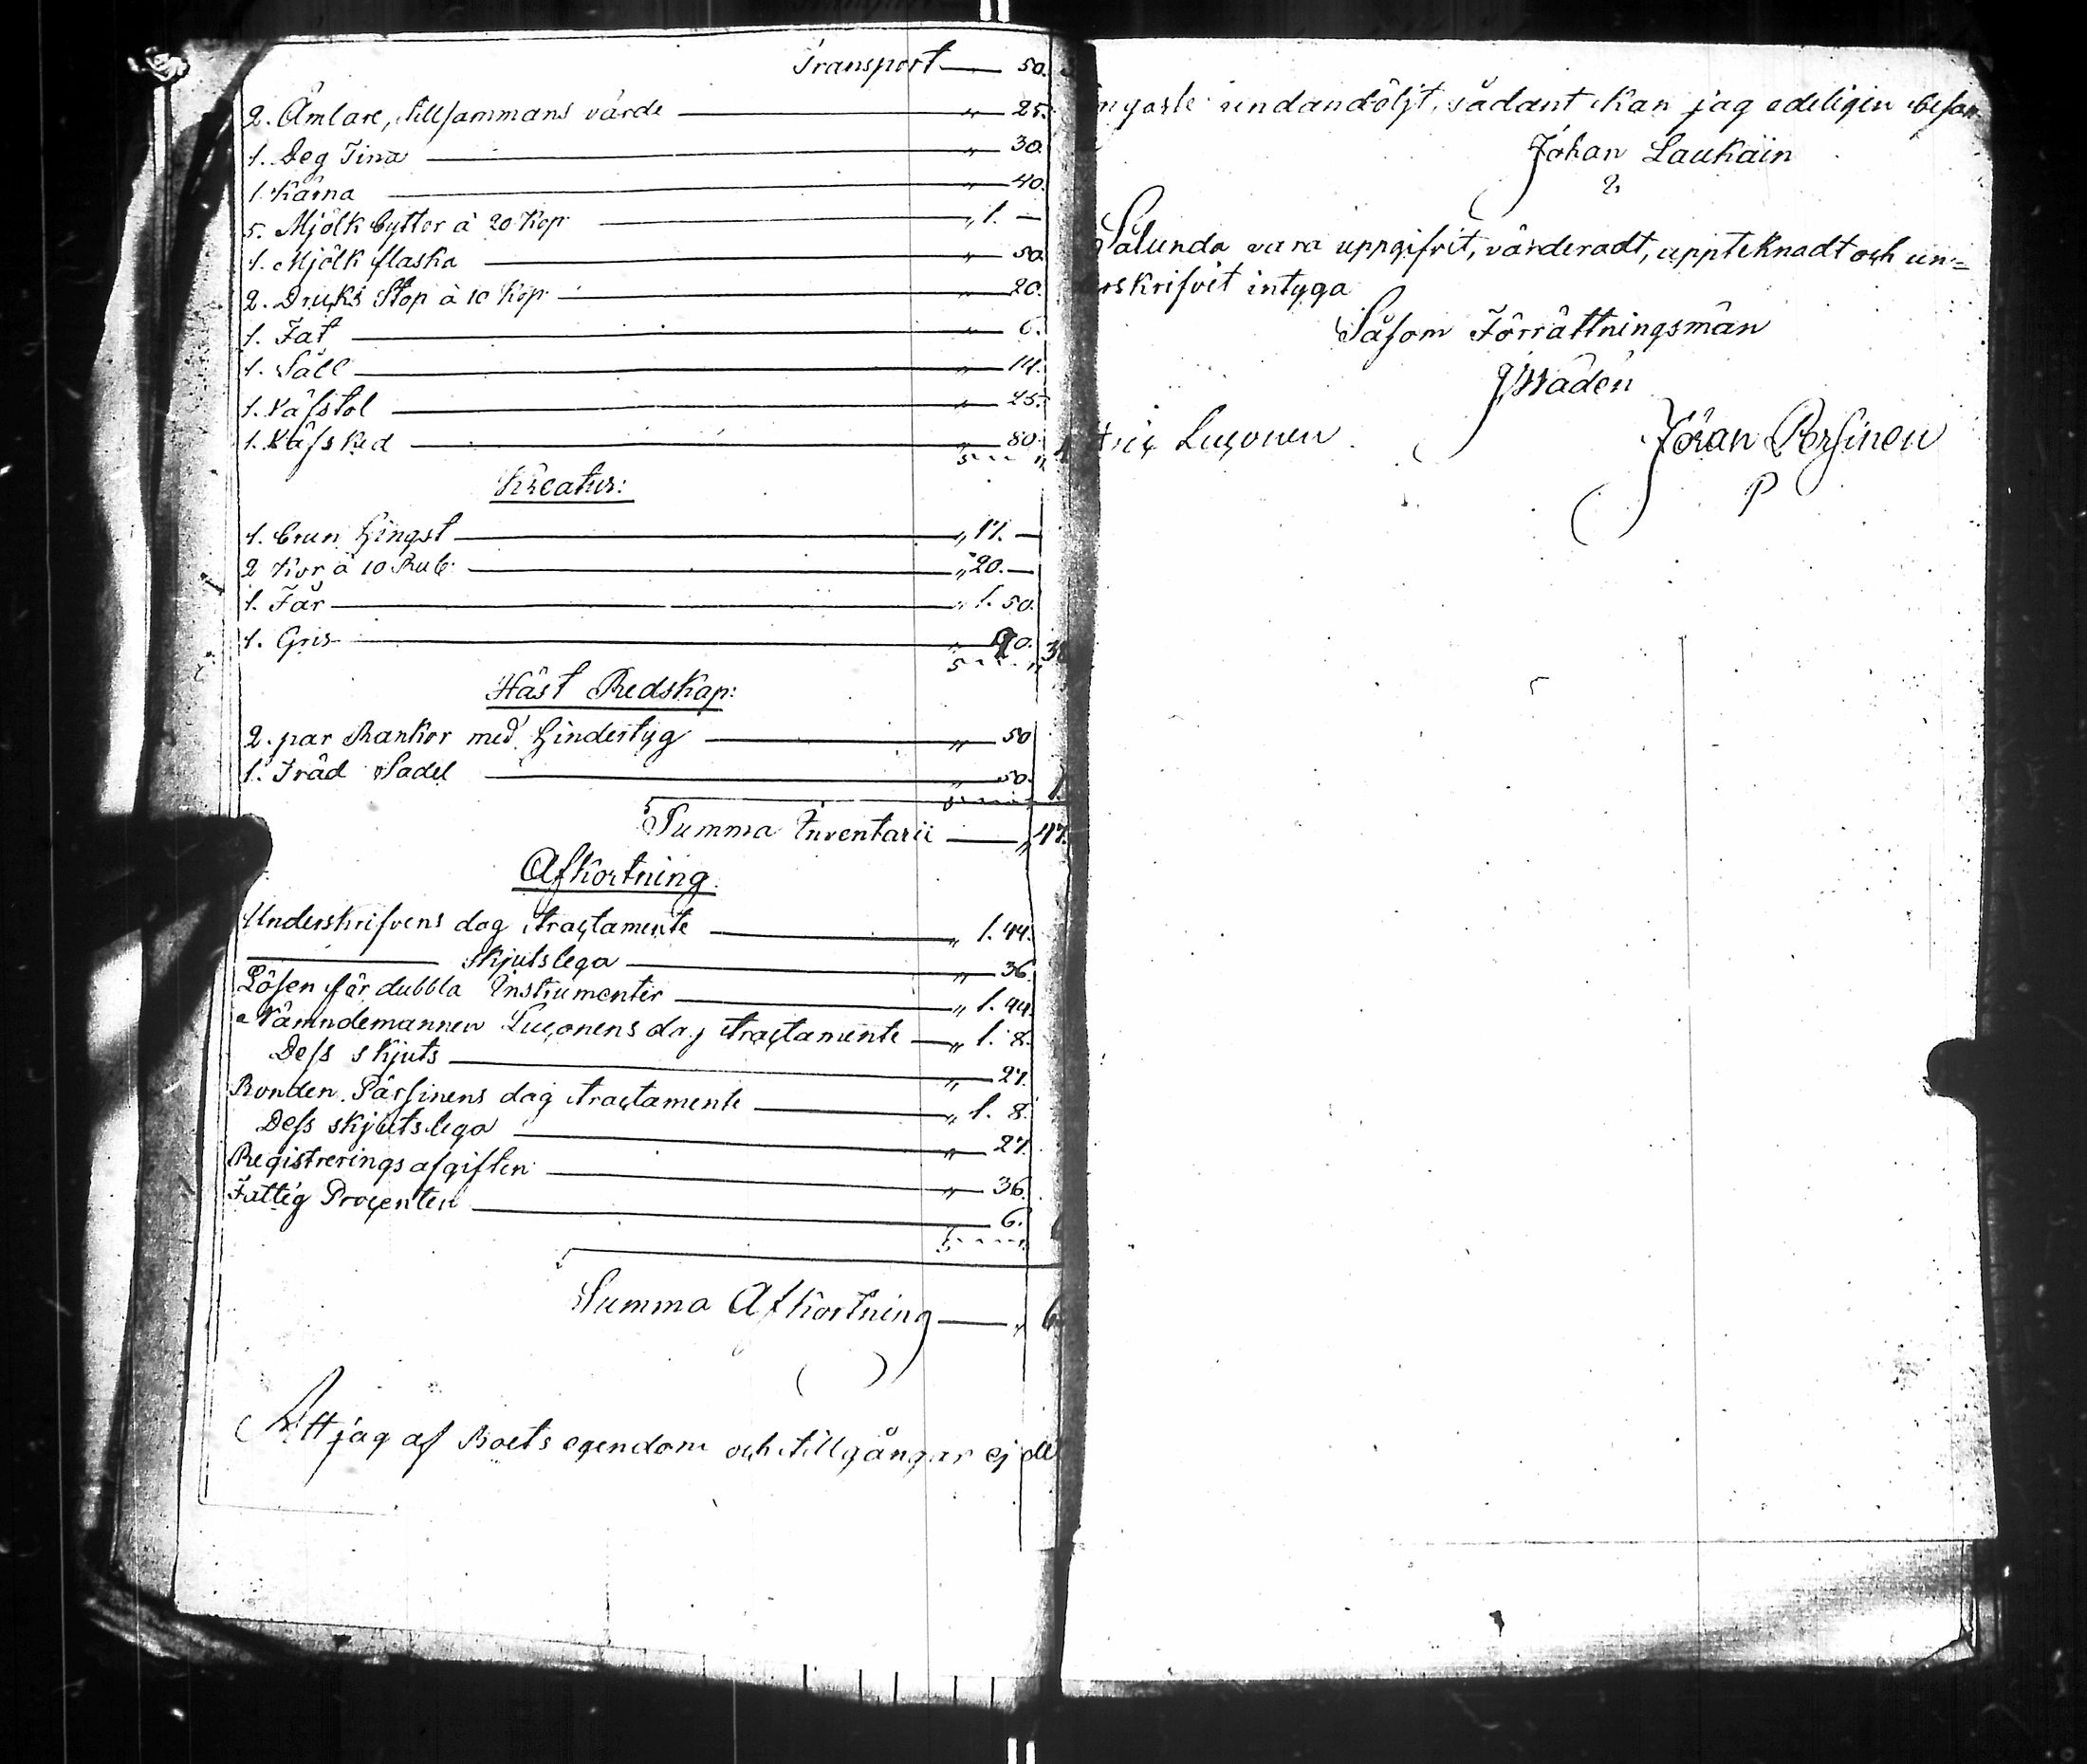 Transport — 50.
2. Ämlare, tillsammans värde — " 25.
1. Deg Tina — " 30.
1. Kärna — " 40.
5. Mjölk byttor à 20 Kop — " 1. —
1. Mjölk flaska — " 50.
2. Dricks Stop à 10 Kop — " 20.
1. Fat — " 6.
1. Såll — " 14.
1. Väfstol — " 25.
1. Väfsked — " 80.
Kreatur:
1. brun Hingst — " 17. —
2 Kor à 10 Rub. — " 20. —
1. Får — " 1. 50.
1. Gris — "
Häst Redskap:
2. par Rankor med Hindertyg — " 50
1. Träd Sadel — " 50.
Summa Inventarii — " 47.
Afkortning
Underskrifvens dag tractamente — " 1. 44.
— skjutslega — " 36
Lösen för dubbla Instrumenter — " 1. 44.
Nämndemannen Luconens dag tractamente — " 1. 8.
Dess skjuts — " 27.
Bonden Pärsinens dag tractamente — " 1. 8.
Dess skjutslega — " 27.
Registrerings afgiften — " 36.
Fattig Procenten — 6.
Summa Afkortning — " 6
Att jag af Boets egendom och tillgångar ej det
ngaste undandöljt, sådant kan jag edeligen
Johan Laukain
Sålunda vara uppgifvit, värderadt, uppteknadt och un=
rskrifvit intyga
Såsom Förrättningsmän
J Wadén
Luconen Jöran Persinen
P